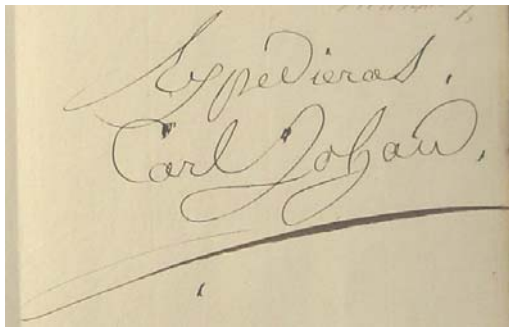 Expedieras.
Carl Johan.